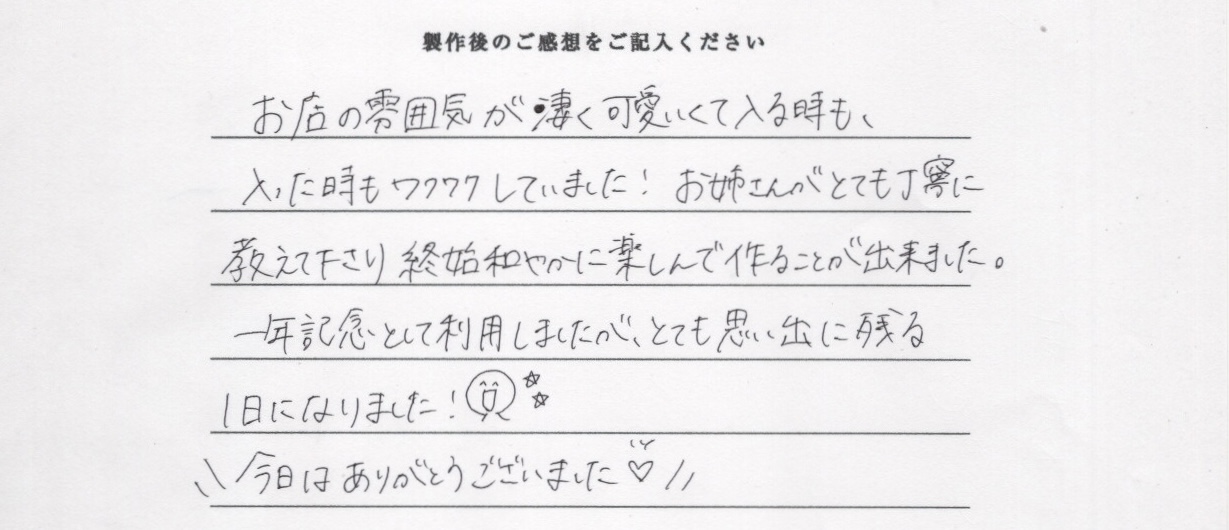 製作後のご感想をご記入ください
お店の雰囲気が凄く可愛いくて入る時も、
入った時もワクワクしていました！ お姉さんがとても丁寧に
教えて下さり終始和やかに楽しんで作ることが出来ました。
一年記念として利用しましたが、とても思い出に残る
1日になりました！
\\今日はありがとうございました♡//